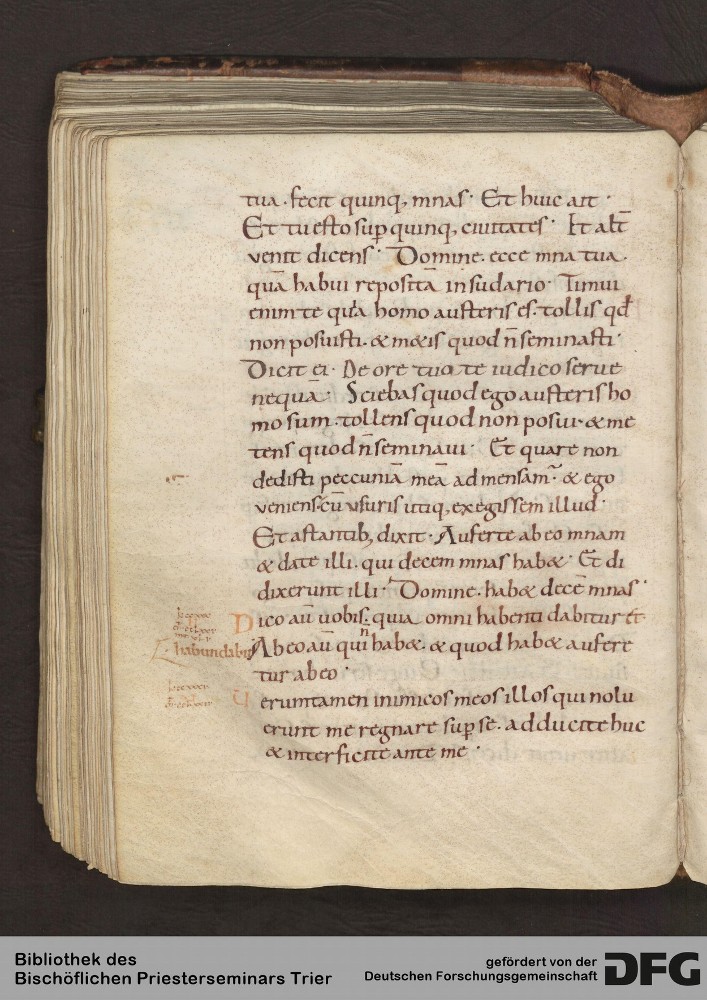 tua · fecit quinq; mnas · Et huic ait ·
Et tu esto sup̱ quinq; ciuitates · Et alt̄
uenit dicens · Domine · ecce mna tua ·
quā habui repositā in sudario · Timui
enim te quia homo austeris es · tollis qđ
non posuisti · & metis quod n̄ seminasti ·
Dicit ei · De ore tuo te iudico serue
nequā · Sciebas quod ego austeris ho
mo sum · tollens quod non posui · & me
tens quod n̄ seminaui · Et quare non
dedisti peccuniā meā ad mensam · & ego
ueniens cū usuris utiq; exegissem illud ·
Et astantib; dixit · Auferte ab eo mnam
& date illi · qui decem mnas hab& · Et di
dixerunt illi · Domine · hab& decē mnas ·
Dico aū uobis · quia omni habenti dabitur et
habundabit
Ab eo aū qui n̄ hab& · & quod hab& aufere
tur ab eo ·
Ueruntamen inimicos meos illos qui nolu
erunt me regnare sup̱ se · adducite huc
& interficite ante me ·
Bibliothek des
Bischöflichen Priesterseminars Trier
gefördert von der
Deutschen Forschungsgemeinschaft
DFG